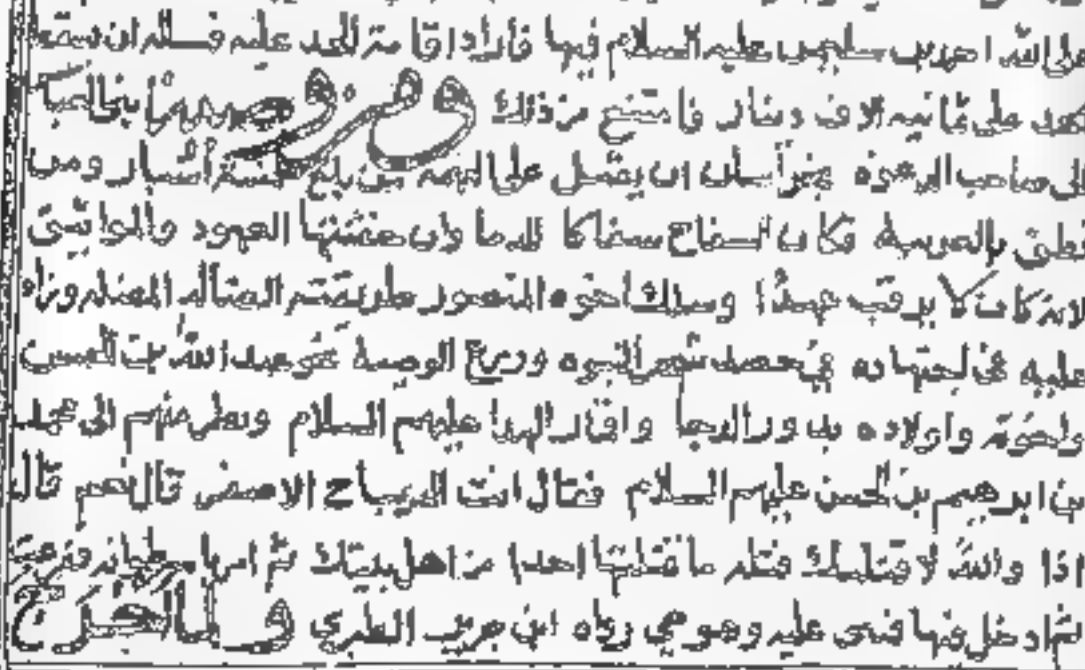 على الله احمد بن سليمن عليه السلام فيها فأراد اقامة الحد عليه فسله ان يسقط
الحد على ثمانيه الاف دينار فامتنع من ذلك وفر وصيهما
الى صاحب الدعوة بخراسان ان يقتل على التهمه من بلغ خمسة أشبار ومن
نطق بالعربية فكان السفاح سفاكا للدما وان العهود والمواثيق
لانه كان لا يرقب عهدا وسلك اخوه المنصور طريقته الضاله المضله وزاد
عليه في اجتهاده في حصد شجر النبوه الوصية نحو عبد الله بن الحسن
واخوته واولاده بدور الدجا واقمار الهدا عليهم السلام ونظر منهم الى محمد
بن ابرهيم بن الحسن عليهم السلام فقال انت الديباج الاصفر قال نعم قال
اذا والله لاقتلنك قتله ما قتلتها احدا من اهل بيتك ثم امر
ثم ادخل فيها فبنى عليه وهو حي رواه ابن جرير الطبري ولما خرج